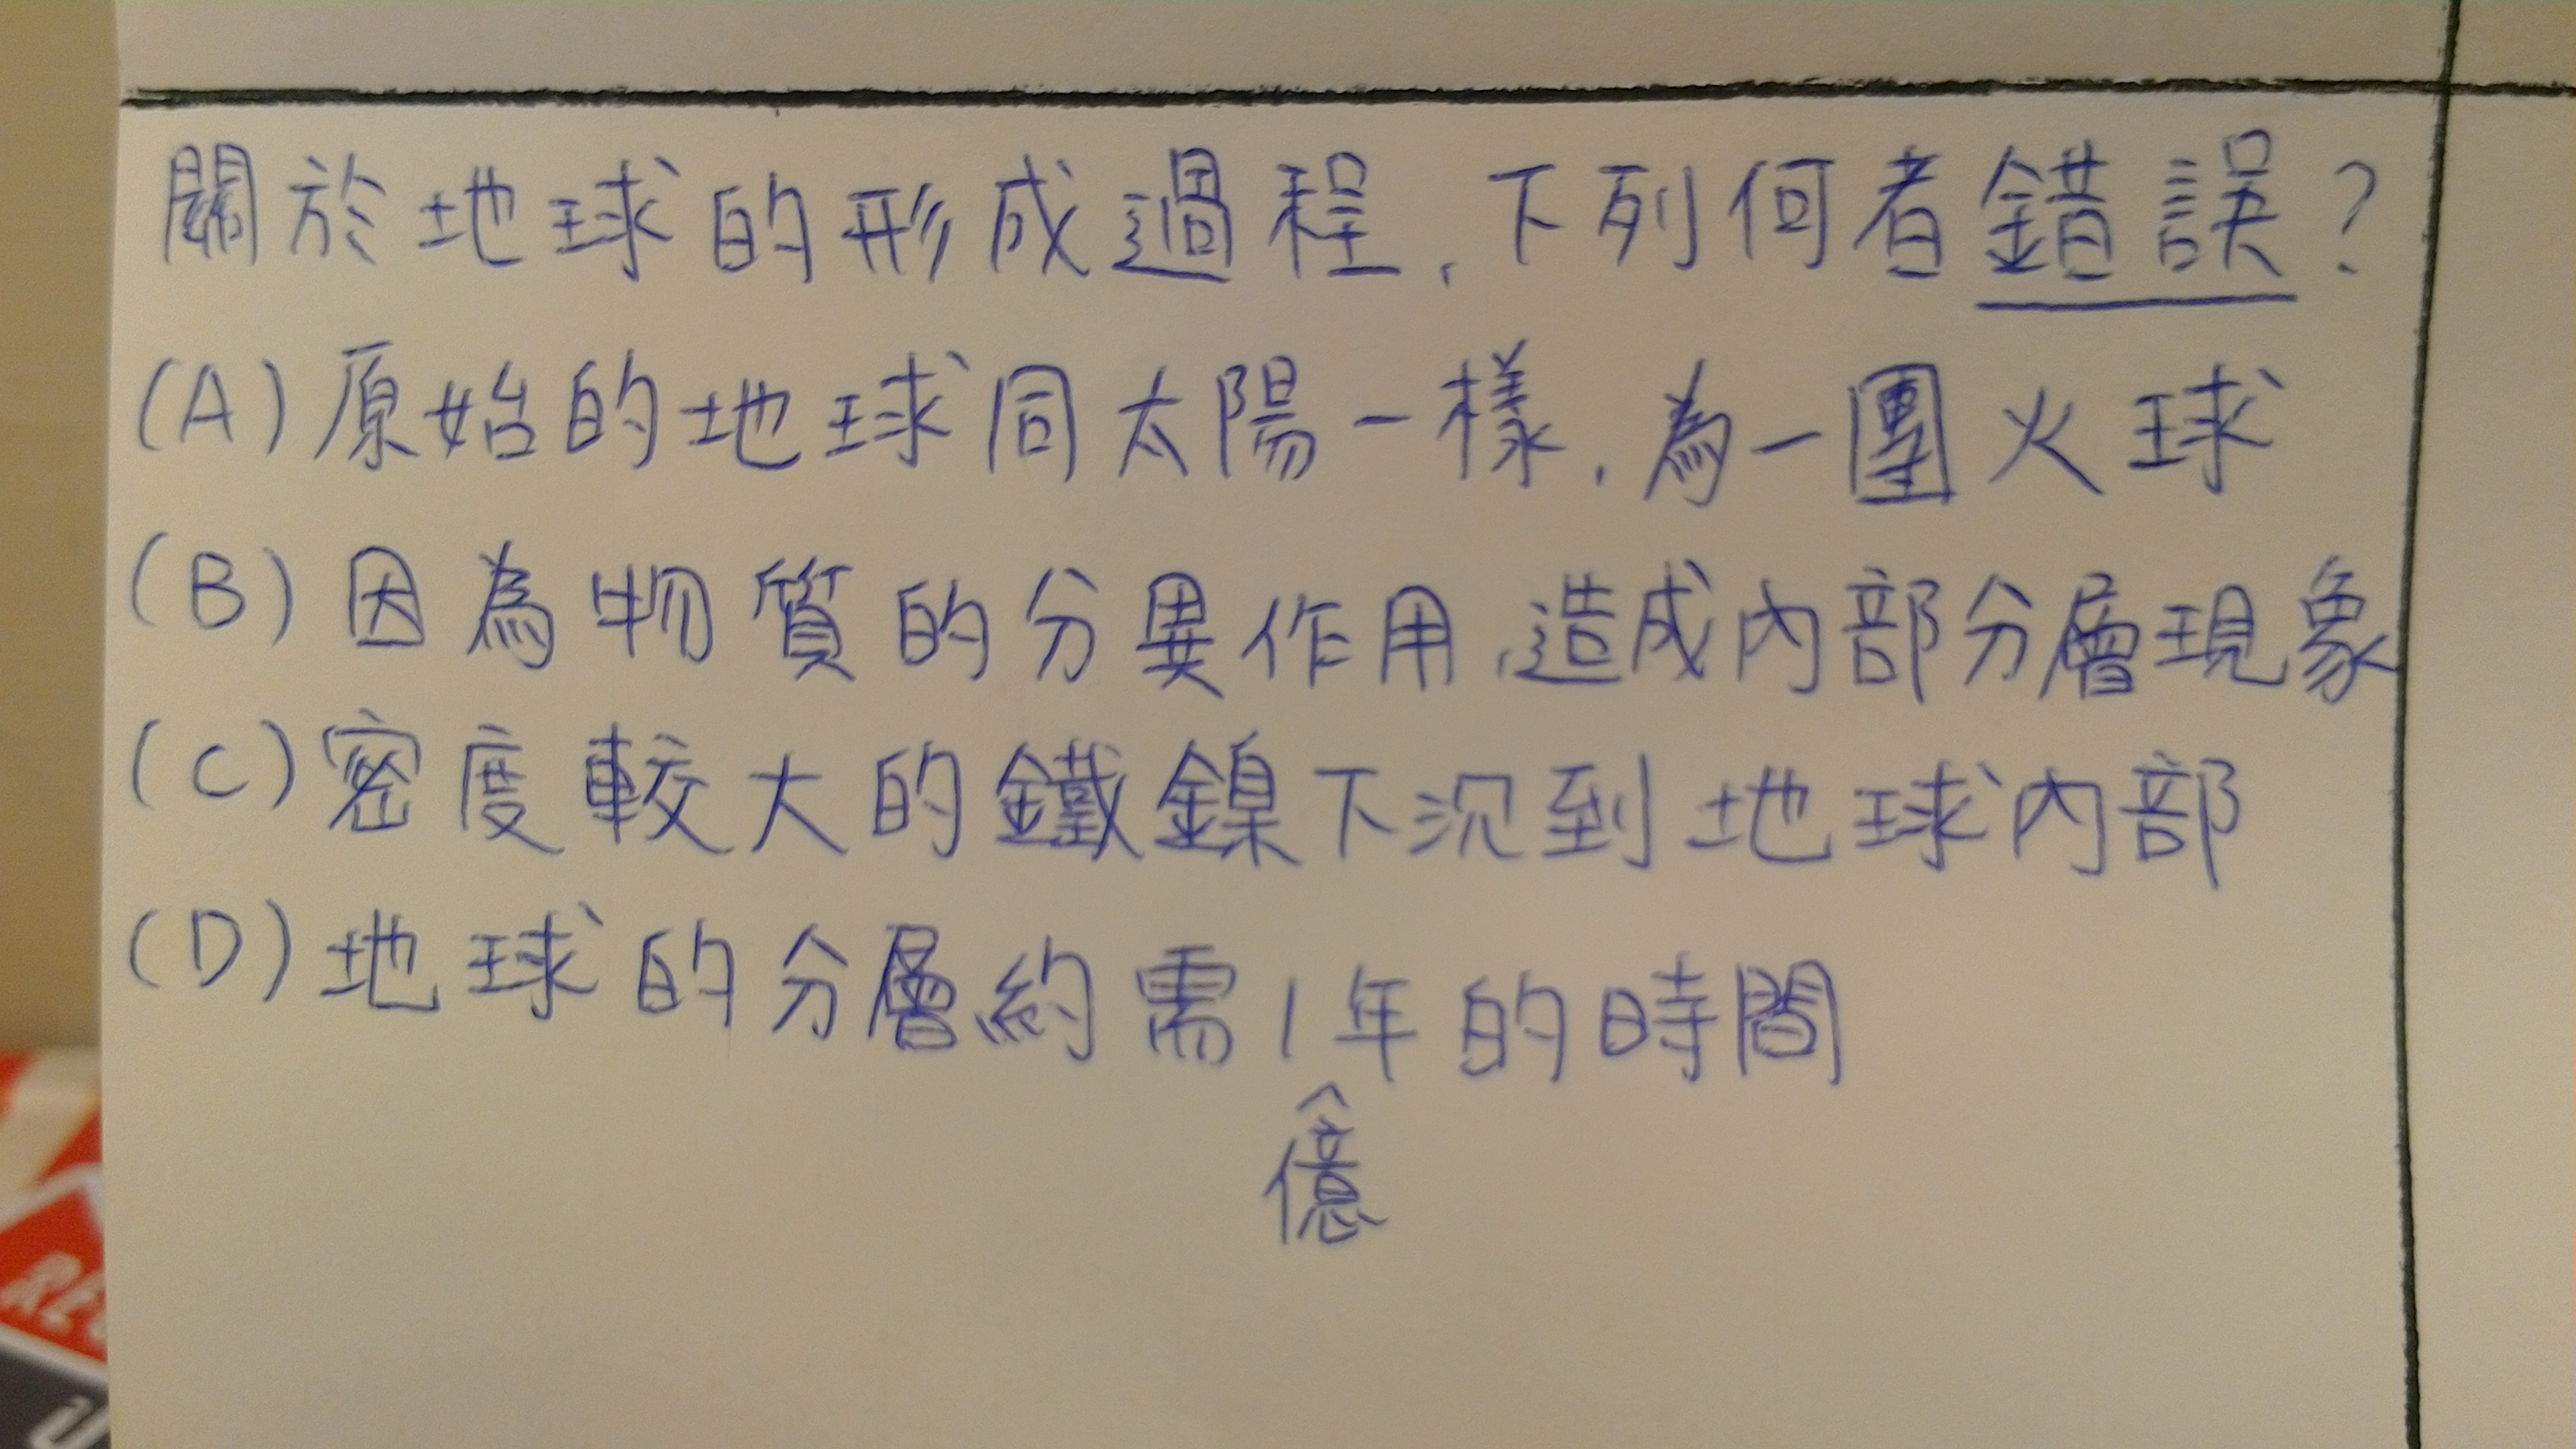 關於地球的形成過程，下列何者錯誤？
(A)原始的地球同太陽一樣，為一團火球
(B)因為物質的分異作用，造成內部分層現象
(C)密度較大的鐵鎳下沉到地球內部
(D)地球的分層約需1年的時間
億